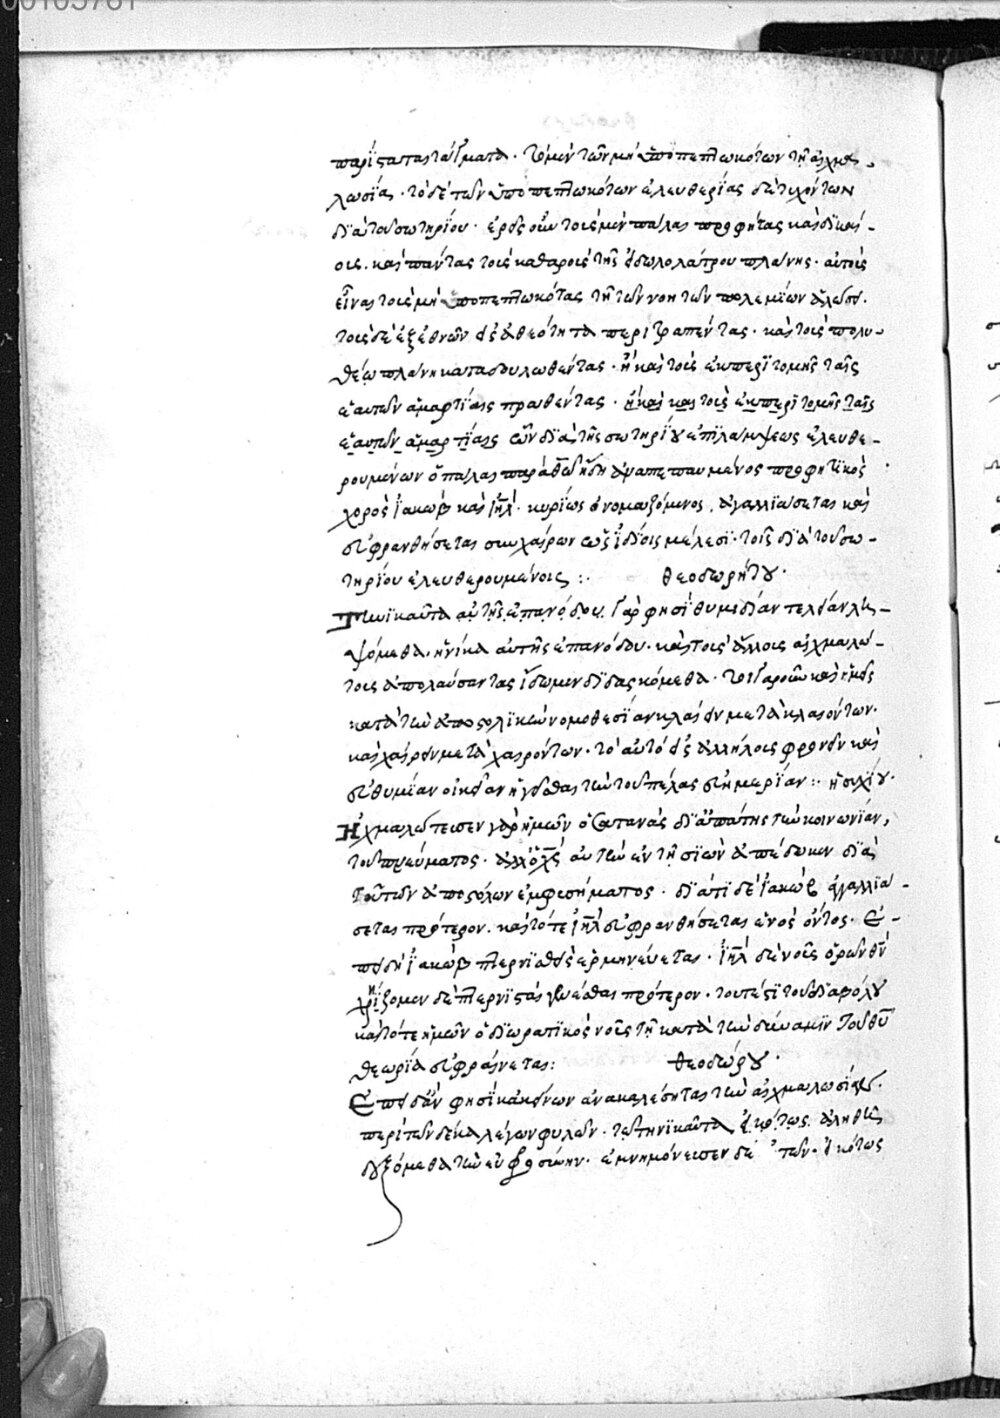 παρίστατας τάγματα. τὸ μὲν τῶν μὴ ὑποπεπτωκότων τῇ αἰχμα-
λωσίᾳ. τὸ δὲ τῶν ὑποπεπτωκότων ἐλευθερίας δὲ τυχόντων
διὰ τοῦ σωτηρίου. ἐρεῖς οὖν τοὺς μὲν πάλαι προφήτας καὶ δικαί-
ους. καὶ πάντας τοὺς καθαροὺς τῆς εἰδωλολάτρου πλάνης. αὐτοὺς
εἶναι τοὺς μὴ ὑποπεπτωκότας τῇ τῶν νοητῶν πολεμίων ἁλώσει.
τοὺς δὲ ἐξ ἐθνῶν εἰς ἀθεότητα περιτραπέντας. καὶ τοὺς πολυ-
θέῳ πλάνῃ καταδουλωθέντας. ἢ καὶ τοὺς ἐκ περιτομῆς ταῖς
ἑαυτῶν ἁμαρτίαις πραθέντας. ἢ καὶ καὶ τοὺς ἐκ περιτομῆς ταῖς
ἑαυτῶν ἁμαρτίαις ὧν διὰ τῆς σωτηρίου ἐπιλάμψεως ἐλευθε-
ρουμένων ὁ πάλαι παρὰ θῶ ἤδη ἀναπεπαυμένος προφητικὸς
χορὸς ἰακὼβ καὶ ἰηλ. κυρίως ὀνομαζόμενος, ἀγαλλιάσεται καὶ
εὐφρανθήσεται συγχαίρων ὡς ἰδίοις μέλεσι. τοῖς διὰ τοῦ σω-
τηρίου ἐλευθερουμένοις :. θεοδωρήτου.
Τηνικαῦτα αὐτῆς ἐπανόδου. γὰρ φησὶ θυμιδίαν τελείαν λη-
ψόμεθα. ἡνίκα αὐτῆς ἐπανόδου. καὶ τοὺς ἄλλους αἰχμαλώ-
τους ἀπολαύσαντας ἴδωμεν διδασκόμεθα. τοιγαροῦν καὶ ἡμεῖς
κατὰ τὴν ἀποστολικὴν νομοθεσίαν κλαίειν μετὰ κλαιόντων.
καὶ χαίρειν μετὰ χαιρόντων. τὸ αὐτὸ εἰς ἀλλήλους φρονεῖν καὶ
εὐθυμίαν οἰκείαν ἡγεῖσθαι τὴν τοῦ πέλας εὐημερίαν :. ἡσυχίου.
Ἠχμαλώτευσεν γὰρ ἡμῶν ὁ σατανᾶς δι ἀπάτης τὴν κοινωνίαν,
τοῦ πνεύματος. ἀλλ ὁ χς αὐτὴν ἐν τῇ σιὼν ἀπέδωκεν διὰ
τοῦ τῶν ἀποστόλων ἐμφυσήματος. διατί δὲ ἰακὼβ ἀγαλλιά-
σεται πρότερον. καὶ τότε ἰηλ εὐφρανθήσεται ἑνὸς ὄντος. ἐ-
πειδὴ ἰακὼβ πτερνιστὴς ἑρμηνεύεται. ἰηλ δὲ νοῦς ὁρῶν θν
χρῄζομεν δὲ πτερνισταὶ γενέσθαι πρότερον. τουτέστι τοῦ διαβόλου
καὶ τότε ἡμῶν ὁ διορατικὸς νοῦς τῇ κατὰ τὴν δύναμιν τοῦ θυ
θεωρίᾳ εὐφραίνεται: θεοδώρου.
Ἐπειδὰν φησὶ κἀκείνων ἀνακαλέσηται τὴν αἰχμαλωσίαν.
περὶ τῶν δέκα λέγων φυλῶν. τότε τηνικαῦτα εἰκότως ἀληθῶς
δεξόμεθα τὴν εὐφροσύνην. ἐμνημόνευσεν δὲ τῶν. εἰκότως